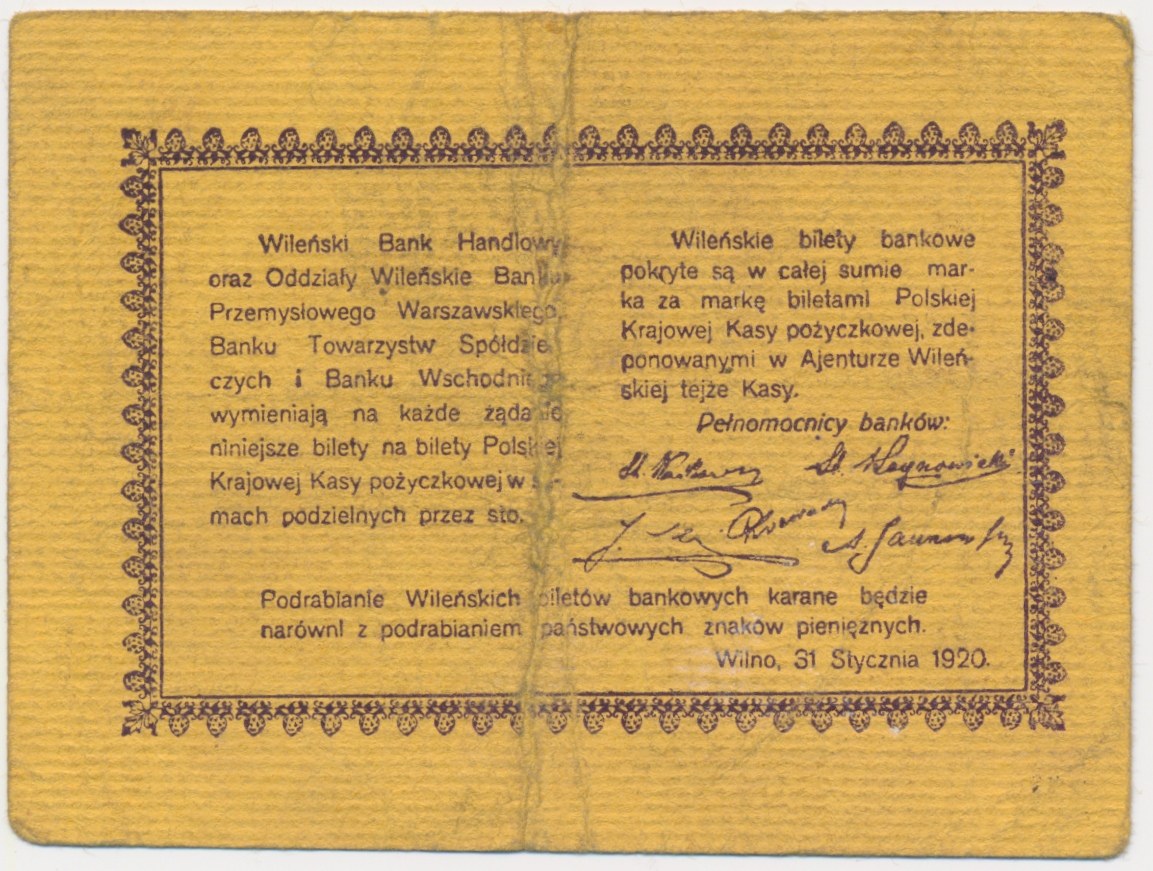 Wileński Bank Handlowy
oraz Oddziały Wileńskie Banku
Przemysłowego Warszawskiego,
Banku Towarzystw Spółdziel-
czych i Banku Wschodniego
wymieniają na każde żądanie
niniejsze bilety na bilety Polskiej
Krajowej Kasy pożyczkowej w su-
mach podzielnych przez sto.
Wileńskie bilety bankowe
pokryte są w całej sumie mar-
ka za markę biletami Polskiej
Krajowej Kasy pożyczkowej, zde-
ponowanymi w Ajenturze Wileń-
skiej tejże Kasy.
Pełnomocnicy banków:
Podrabianie Wileńskich biletów bankowych karane będzie
narówni z podrabianiem państwowych znaków pieniężnych.
Wilno, 31 Stycznia 1920.